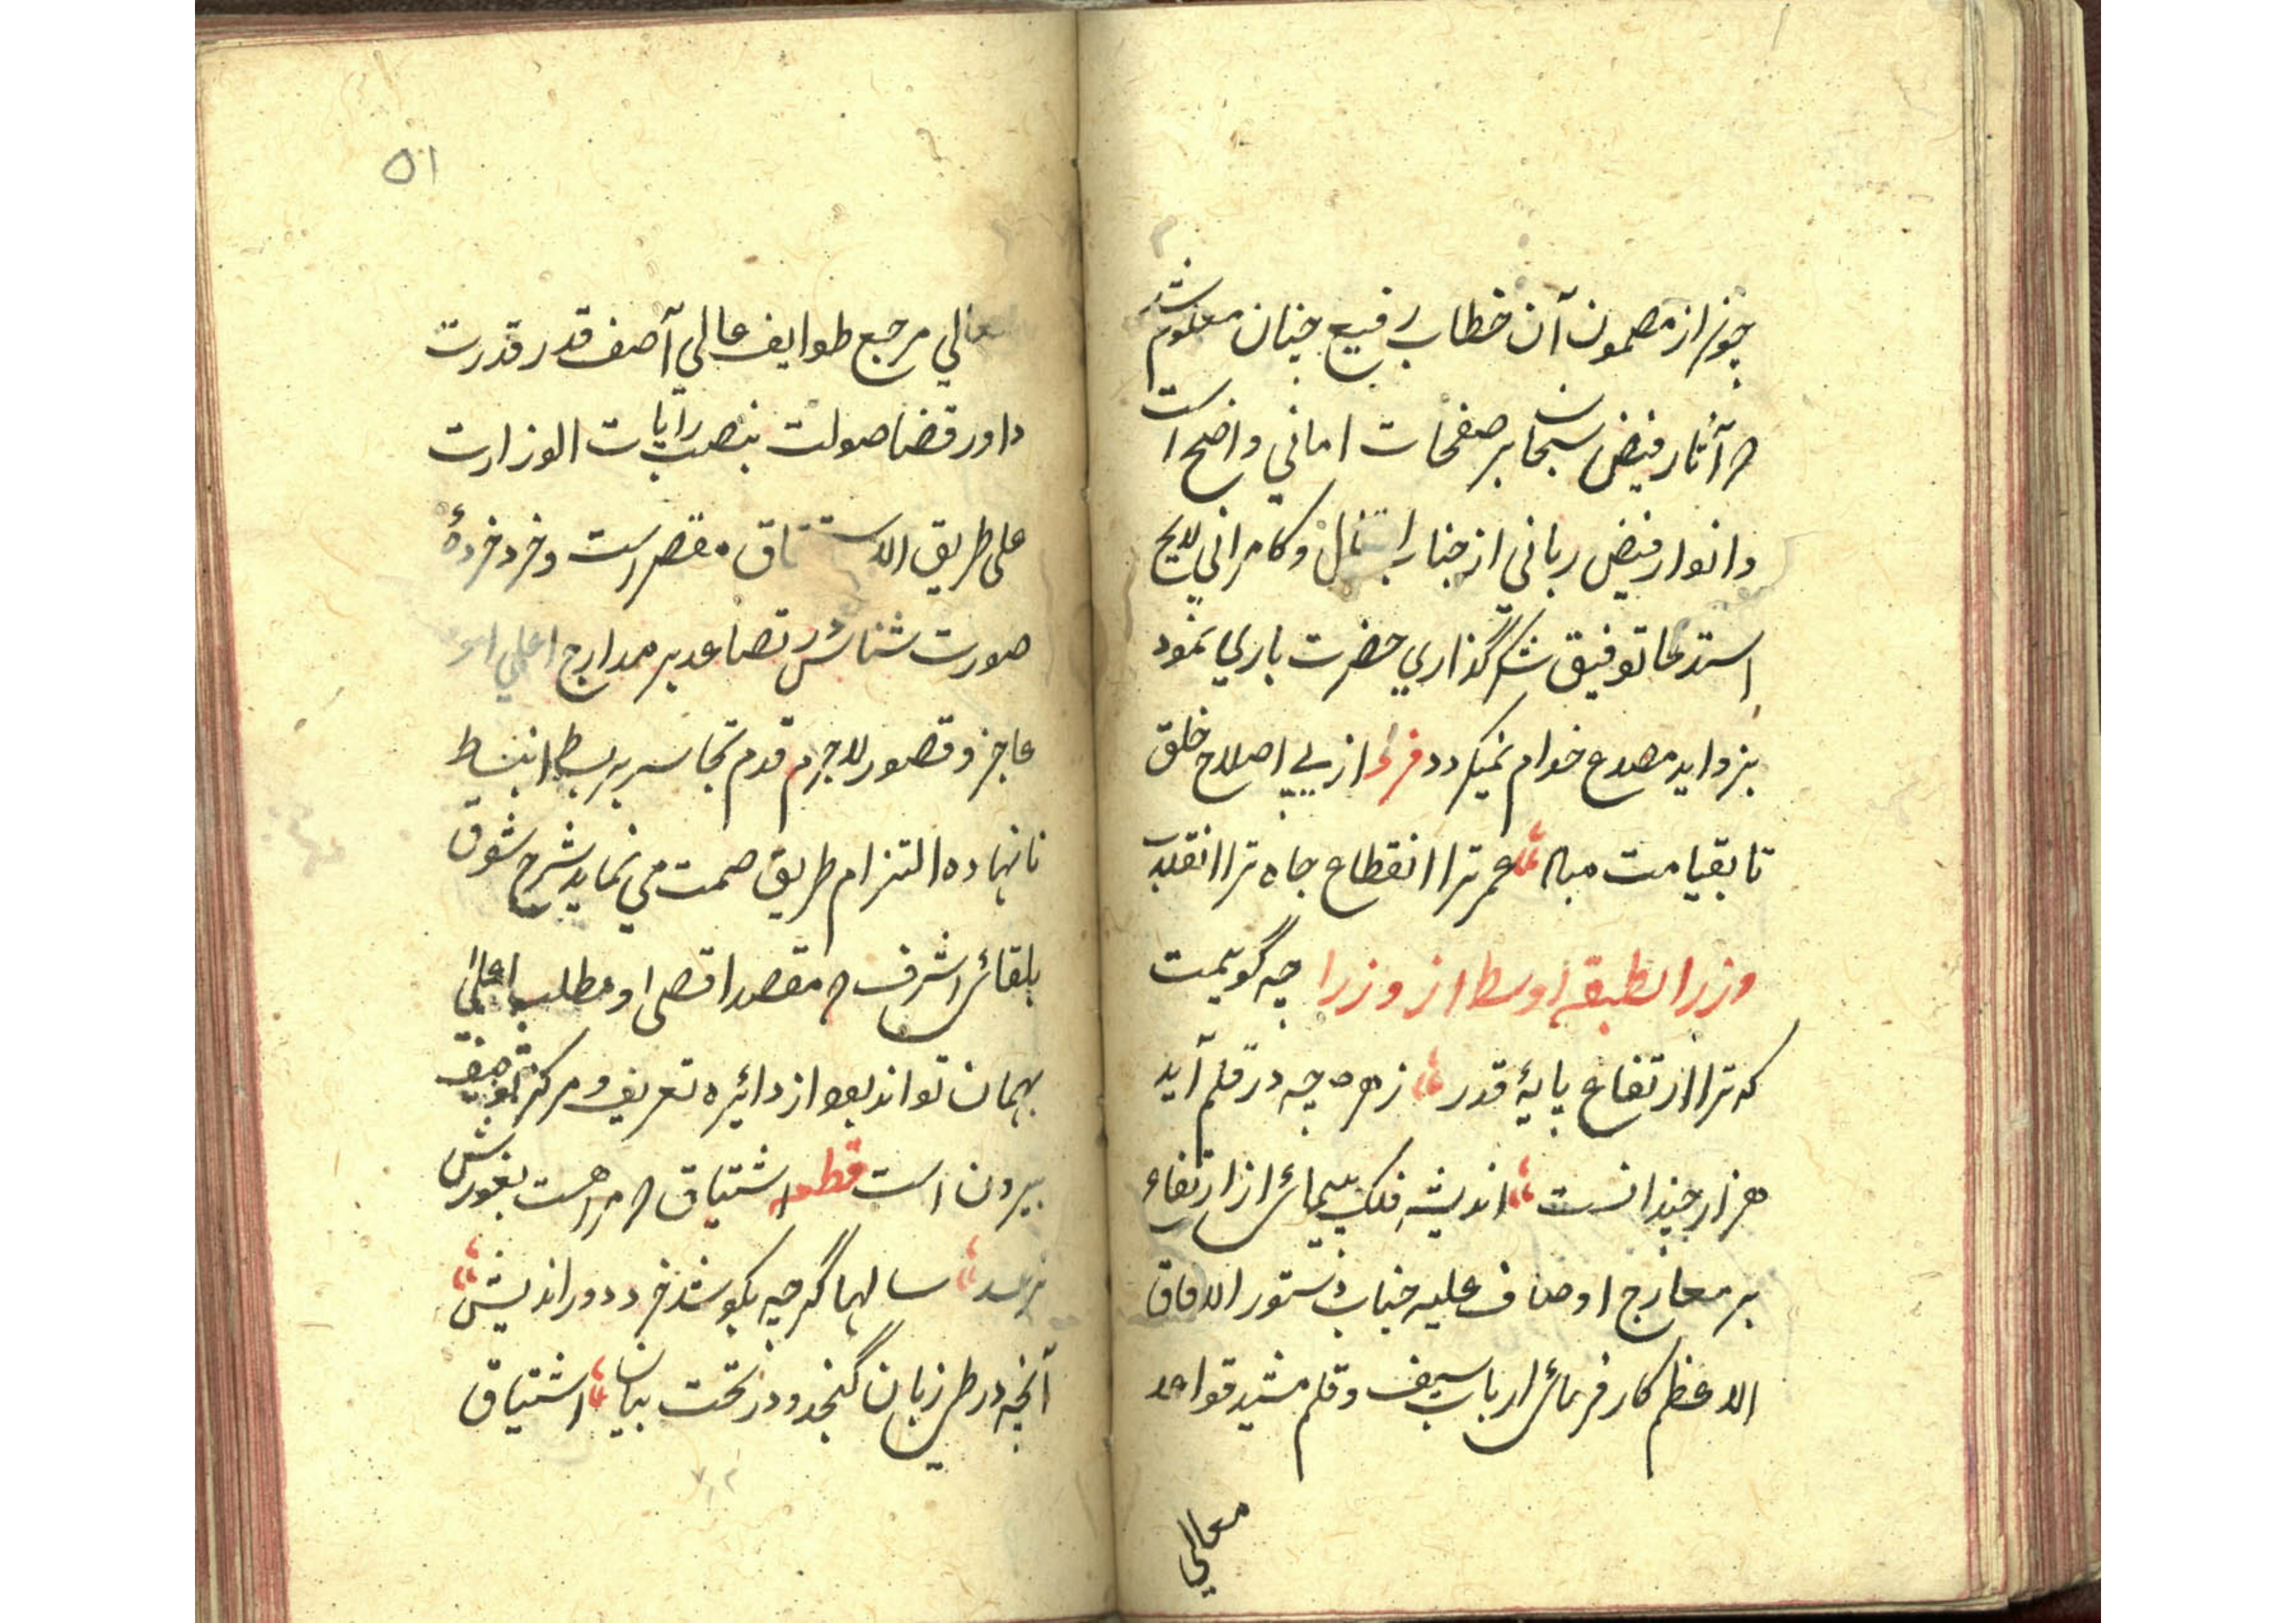 چون از مضمون آن خطاب رفیع چنان معلوم شد
که آثار فیض سبحان بر صفحات امانی واضح است
و انوار فیض ربانی از جناب و کامرانی لایح
استدعا توفیق شکرگذاری حضرت باری نمود
بزواید مصدع خوام نمیگردد فرد از پی اصلاح خلق
تا بقیامت مباد عمر ترا انقطاع جاه ترا انقلاب
وزرا لطبقه اوسط از وزرا چه گویمت
که ترا ارتفاع پایهٔ قدر زهرچه در قلم آید
هزار چندانست اندیشه فلک پیمائی از ارتفاع
بر معارج اوصاف علیه جناب دستور الافاق
الاعظم کارفرمائی ارباب سیف و قلم مشید قواعد
معالي
۵۱
معالي مرجع طوایف عالي آصف قدر قدرت
داور قضا صولت بنصب رایات الوزارت
علی طریق مقصر است و خرد خردهٔ
صورت شناس تصاعد بر مدارج اعلي
عاجز و قصور لاجرم قدم تجاسر بر بساط انبساط
نانهاده التزام طریق صمت می نماید شرح شوق
بلقائی اشرف که مقصد اقصی و مطلب اعلی
بهمان تواند بود از دائره تعریف و مرکز توصیف
بیرون است قطعه اشتیاق که مرا هست بغورش
نرسد سالها گرچه بکوشد خرد دور اندیش
آنچه در طی زبان گنجد و در تحت بیان اشتیاق